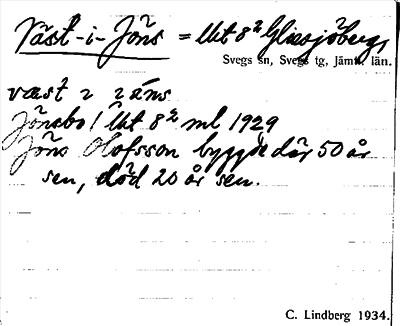 Väst-i-Jöns = Utt 8² Glissjöberg,
Svegs sn, Svegs tg, Jämtl. län.
väst 2 2äns
Jönsbo / Utt 8² ml 1929
Jöns Olofsson byggde där 50 år
sen, död 20 år sen.
C. Lindberg 1934.